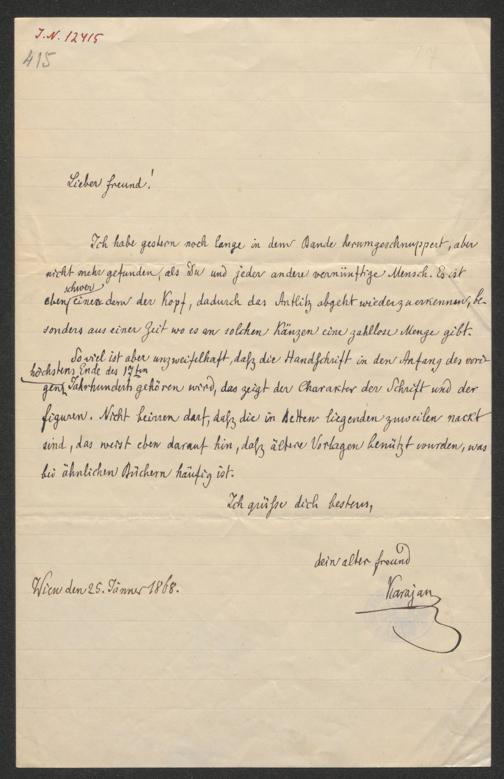 J. N. 12415
415
Lieber Freund!
Ich habe gestern noch lange in dem Bande herumgeschnuppert, aber
nicht mehr gefunden, als Du und jeder andere vernünftige Mensch. Es ist
schwer
eben einem dem der Kopf, dadurch das Antlitz abgeht wiederzuerkennen, be-
sonders aus einer Zeit wo es an solchen Känzen eine zahllose Menge gibt.
So viel ist aber unzweifelhaft, daß die Handschrift in den Anfang des vori-
höchstens Ende des 17ten
gen Jahrhunderts gehören wird, das zeigt der Charakter der Schrift und der
Figuren. Nicht beirren darf, daß die in Betten liegenden zuweilen nackt
sind, das weist eben darauf hin, daß ältere Vorlagen benützt wurden, was
bei ähnlichen Büchern häufig ist.
Ich grüße dich bestens,
dein alter Freund
Wien den 25. Jänner 1868.
Karajan